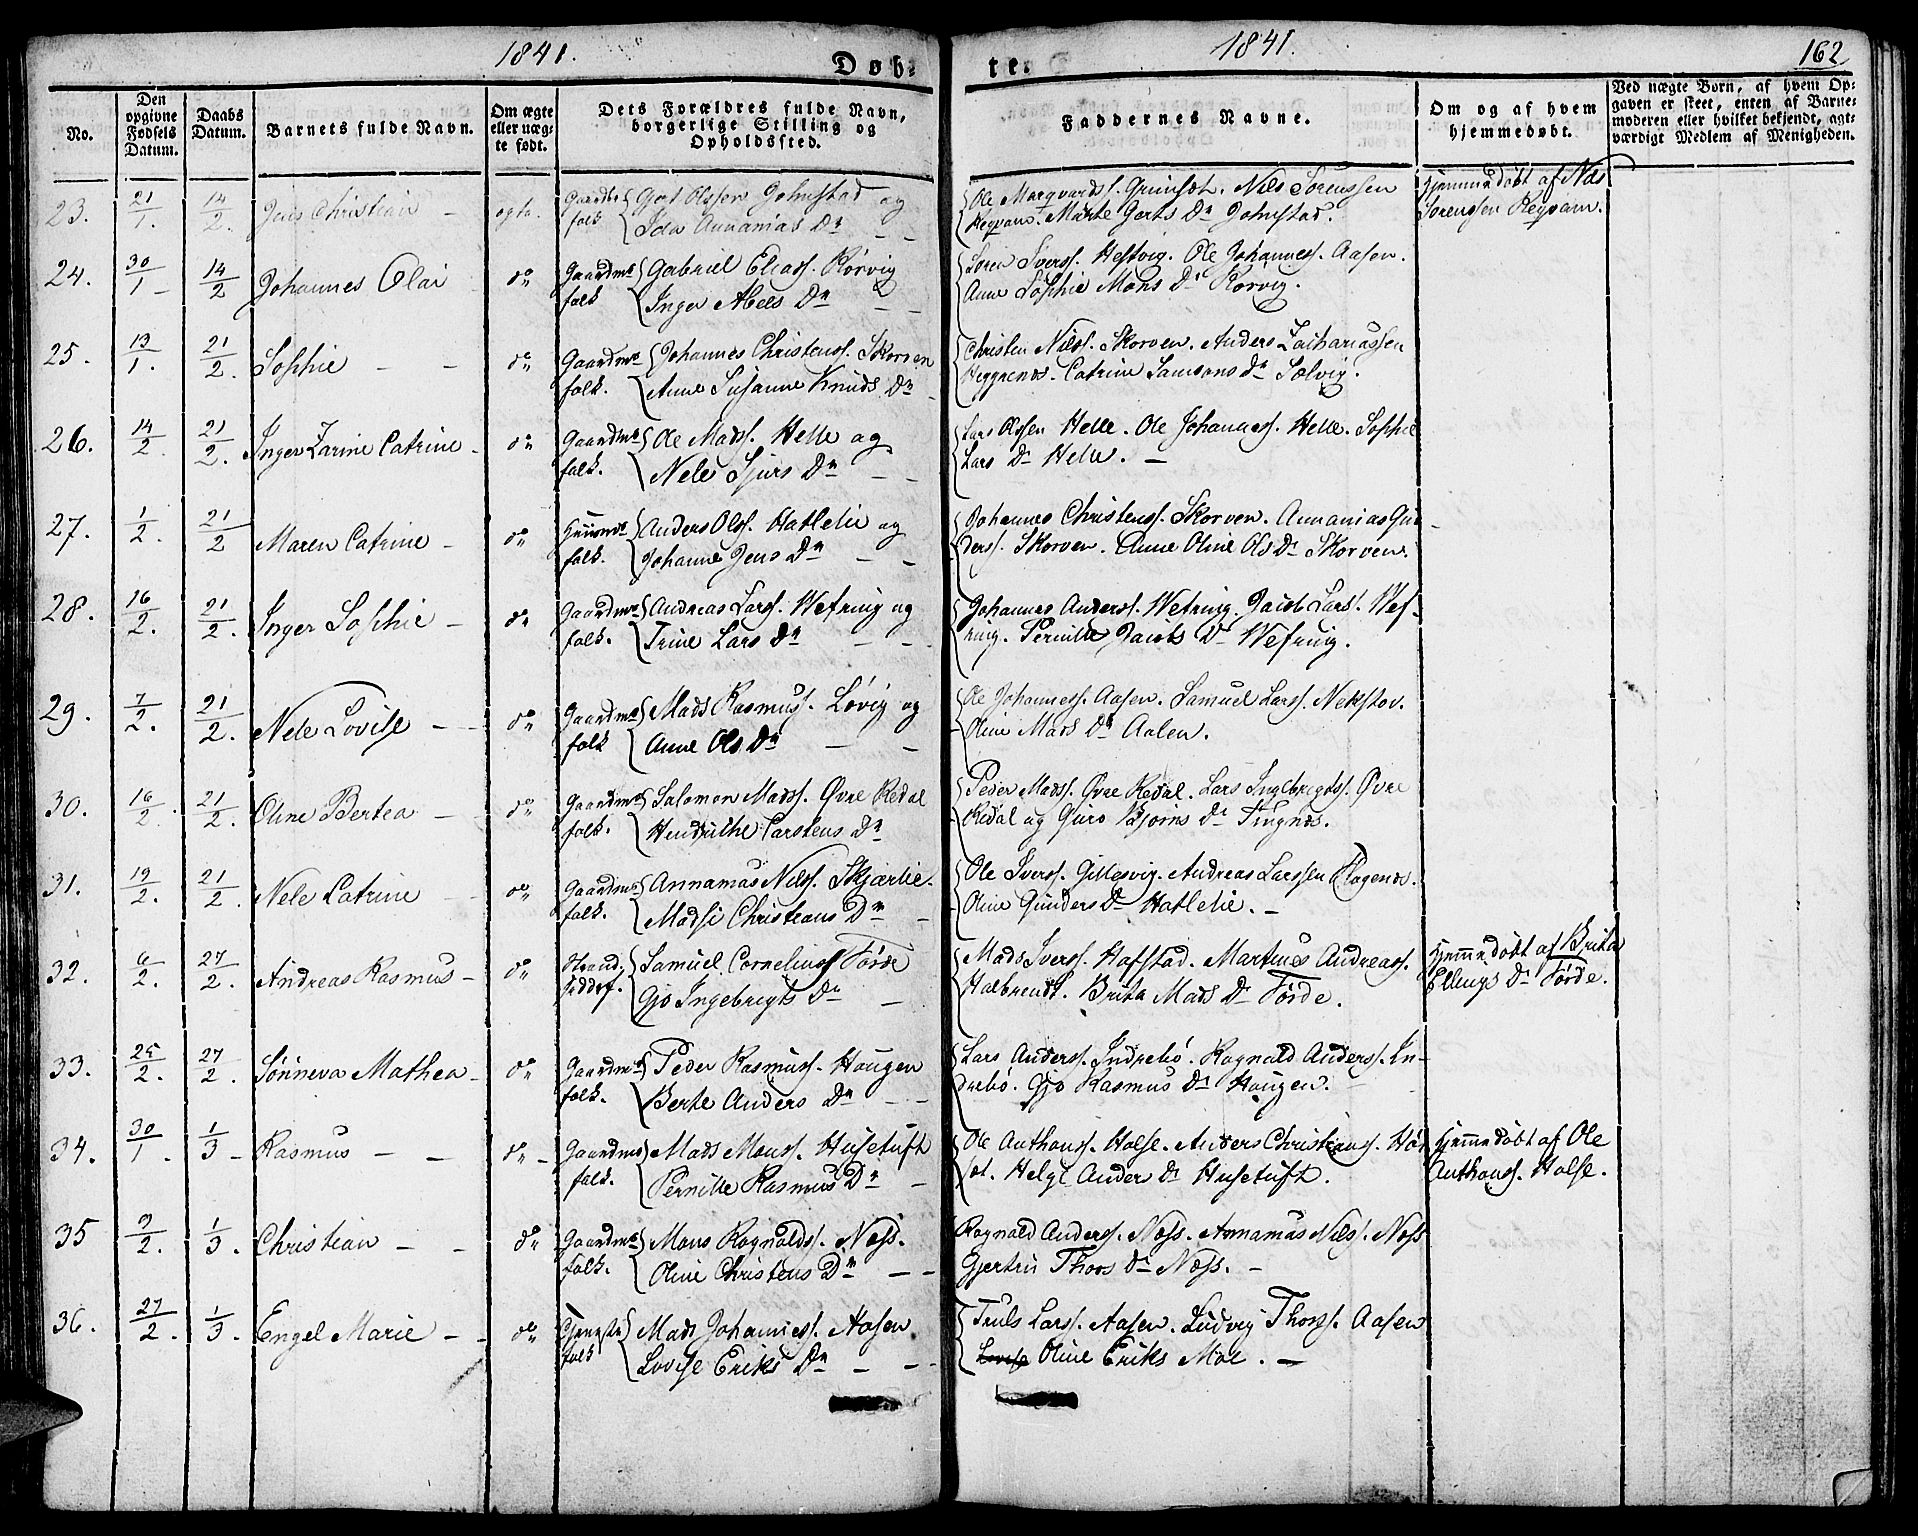 1841.
Døb-
te.
1841.
162
No.
Den opgivne Fødsels Datum.
Daabs Datum.
Barnets fulde Navn.
Om ægte eller uægte født.
Dets Forældres fulde Navn, borgerlige Stilling og Opholdssted.
Faddernes Navne.
Om og af hvem hjemmedøbt.
Ved uægte Børn, af hvem Opgaven er skeet, enten af Barnemoderen eller hvilket bekjendt, agtværdigt Medlem af Menigheden.
23. 21/1. 14/2. Jens Christian – ægte. Gaardm folk Gjert Olssen Jonstad og
Ida Annanias Dr – –
Ole Marqvards. Grimset. Nils Sørenssen
Regvam. Marte Gerts Dr Jonstad.
Hjemmedøbt af Nils
Sørenssen Regvam.
24. 30/1 14/2 Johannes Olai do Gaardms folk Gabriel Eliass. Rørvig
Inger Abels Dr – –
Søren Iverss. Hestvig. Ole Johanness. Aasen.
Anne Sophie Mons Dr Rørvig.
25. 13/1. 21/2. Sophie – – do Gaardms folk. Johannes Christenss. Skorven
Anne Susanne Knuds Dr –
Christen Nilss. Skorven. Anders Zachariassen
Heggenes. Catrine Samsons Dr Solvig.
26. 14/2. 21/2. Inger Zarine Catrine – do Gaardms folk. Ole Madss. Helle og
Nele Sjurs Dr – –
Lars Olssen Helle. Ole Johanness. Helle. Sophie
Lars Dr Helle. –
27. 1/2. 21/2 Maren Catrine – do Huusms folk. Anders Olss. Hatlelie og
Johanne Jens Dr – –
Johannes Christenss. Skorven. Annanias Gun-
ders. Skorven. Anne Oline Ols Dr Skorven.
28. 16/2. 21/2. Inger Sophie – do Gaardms folk. Andreas Larss. Wefring og
Trine Lars Dr – –
Johannes Anderss. Wefring. Jacob Larss. Wef-
ring. Pernille Jacobs Dr Wefring.
29. 7/2. 21/2. Nele Lovise – – do Gaardms folk Mads Rasmuss. Løvig og
Anne Ols Dr – –
Ole Johanness. Aasen. Samuel Larss. Nekstov.
Oline Mads Dr Aasen.
30. 16/2. 21/2. Oline Bertea – do Gaardms folk. Salomon Madss. Øvre Redal
Hendrikke Carstens Dr
Peder Madss. Øvre Redal. Lars Ingebrigtss. Øvre
Redal og Guro Bjørns Dr Tingnes.
31. 19/2. 21/2. Nele Catrine – do Gaardms folk. Annanias Nilss. Skjærlie.
Madsi Christens Dr –
Ole Iverss. Gillesvig. Andreas Larssen Hagenes.
Oline Gunders Dr Hatlelie. –
32. 6/2. 27/2. Andreas Rasmus – do Strandsiddsf. Samuel Corneliuss Førde
Gjo Ingebrigts Dr –
Mads Iverss. Hafstad. Martines Andreass.
Halbrendt. Brita Mads Dr Førde.
Hjemmedøbt af Brita
Ellings Dr Førde.
33. 25/2. 27/2. Sønneva Mathea – do Gaardms folk. Peder Rasmuss. Haugen
Berte Anders Dr – –
Lars Anderss. Indrebø. Ragnald Anderss. In-
drebø. Gjo Rasmus Dr Haugen. –
34. 30/1. 1/3 – Rasmus – – do – Gaardms folk. Mads Monss. Husetuft
Pernille Rasmus Dr –
Ole Anthonss. Halse. Anders Christianss.
Helge Anders Dr Husetuft.
Hjemmedøbt af Ole
Anthonss. Halse.
35 9/2. 1/3. Christian – – do Gaardms folk. Mons Ragnaldss. Næss.
Oline Christens Dr – –
Ragnald Anderss. Næss. Annanias Nilss. Næss
Gjertrü Thors Dr Næss. –
36. 27/2. 1/3. Engel Marie – – do Tjeneste folk Mads Johanness. Aasen
Lovise Eriks Dr – –
Truls Larss. Aasen. Ludvig Thorss. Aasen
Lovise Oline Eriks Moe. –